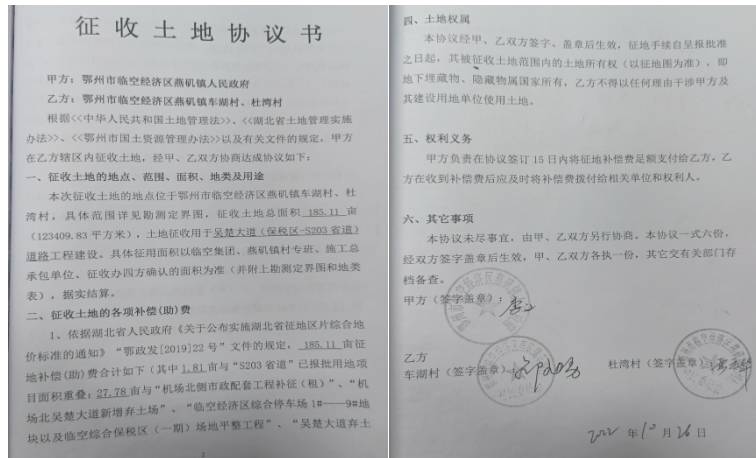 征收土地协议书
甲方：鄂州市临空经济区燕矶镇人民政府
乙方：鄂州市临空经济区燕矶镇车湖村、杜湾村
根据<<中华人民共和国土地管理法>>、<<湖北省土地管理实施
办法>>、<<鄂州市国土资源管理办法>>以及有关文件的规定，甲方
在乙方辖区内征收土地，经甲、乙双方协商达成协议如下：
一、征收土地的地点、范围、面积、地类及用途
本次征收土地的地点位于鄂州市临空经济区燕矶镇车湖村、杜
湾村，具体范围详见勘测定界图，征收土地总面积 185.11 亩
（123409.83 平方米），土地征收用于吴楚大道（保税区-S203 省道）
道路工程建设。具体征用面积以临空集团、燕矶镇专班、施工总
承包单位、征收办四方确认的面积为准（并附上勘测定界图和地类
表），据实结算。
二、征收土地的各项补偿(助)费
1、依据湖北省人民政府《关于公布实施湖北省征地区片综合地
价标准的通知》“鄂政发[2019]22 号”文件的规定，185.11 亩征
地补偿(助)费合计如下（其中 1.81 亩与“S203 省道”已报批用地项
目面积重叠；27.78 亩与“机场北侧市政配套工程补征（租）”、“机
场北吴楚大道新增弃土场”、“临空经济区综合停车场 1#——9#地
块以及临空综合保税区（一期）场地平整工程”、“吴楚大道弃土
四、土地权属
本协议经甲、乙双方签字、盖章后生效，征地手续自呈报批准
之日起，其被征收土地范围内的土地所有权（以征地图为准），即
地下埋藏物、隐藏物属国家所有，乙方不得以任何理由干涉甲方及
其建设用地单位使用土地。
五、权利义务
甲方负责在协议签订 15 日内将征地补偿费足额支付给乙方，乙
方在收到补偿费后应及时将补偿费拨付给相关单位和权利人。
六、其它事项
本协议未尽事宜，由甲、乙双方另行协商。本协议一式六份，
经双方签字盖章后生效，甲、乙双方各执一份，其它交有关部门存
档备查。
甲方（签字盖章）：
乙方
车湖村（签字盖章） 杜湾村（签字盖章）
2022 年 10 月 26 日